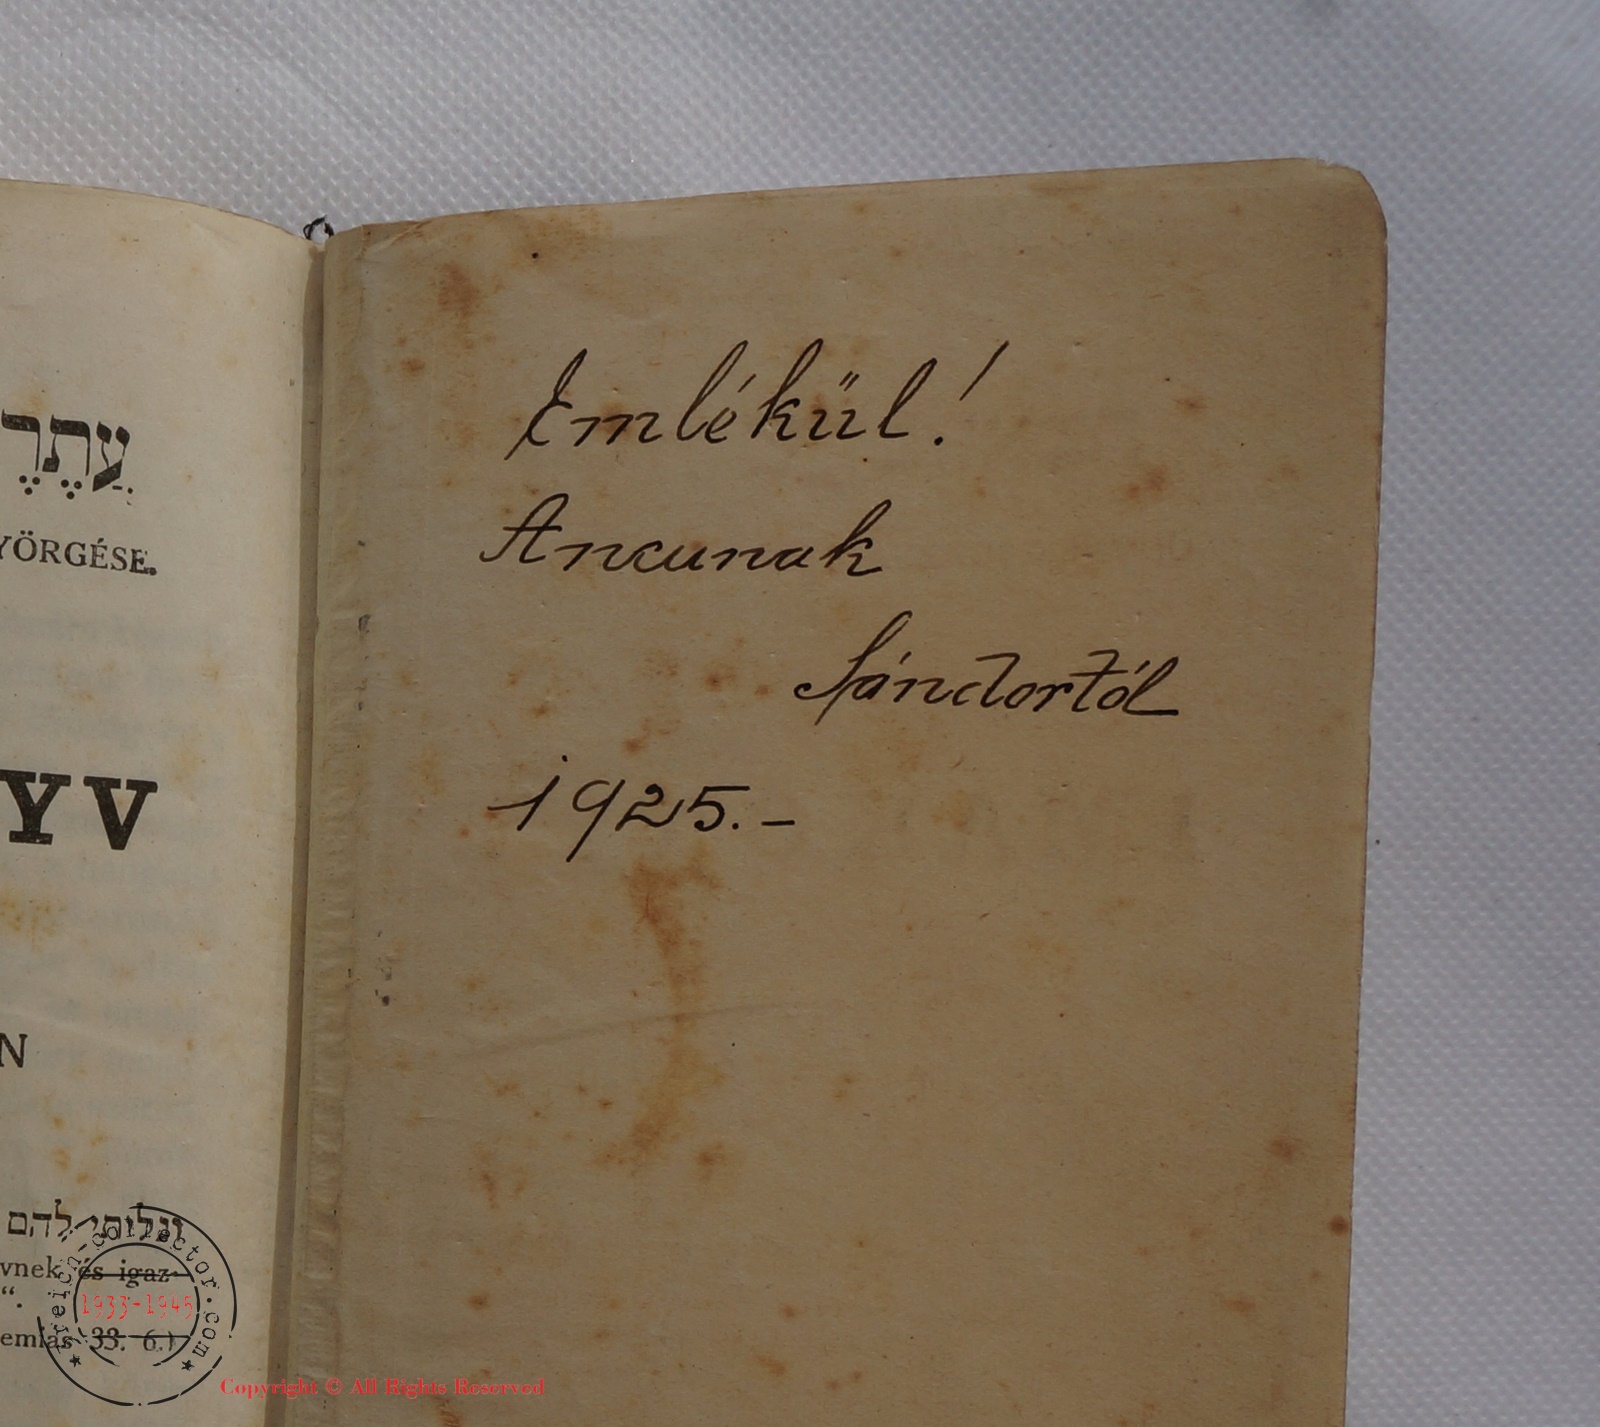 Emlékül!
Ancunak
Sándortól
1925.-
עֲתֶרֶ
YÖRGÉSE.
YV
N
וגליתי להם
vnek és igaz-
“.
emiás 33. 6.)
3reich-collector.com
1933-1945
Copyright © All Rights Reserved